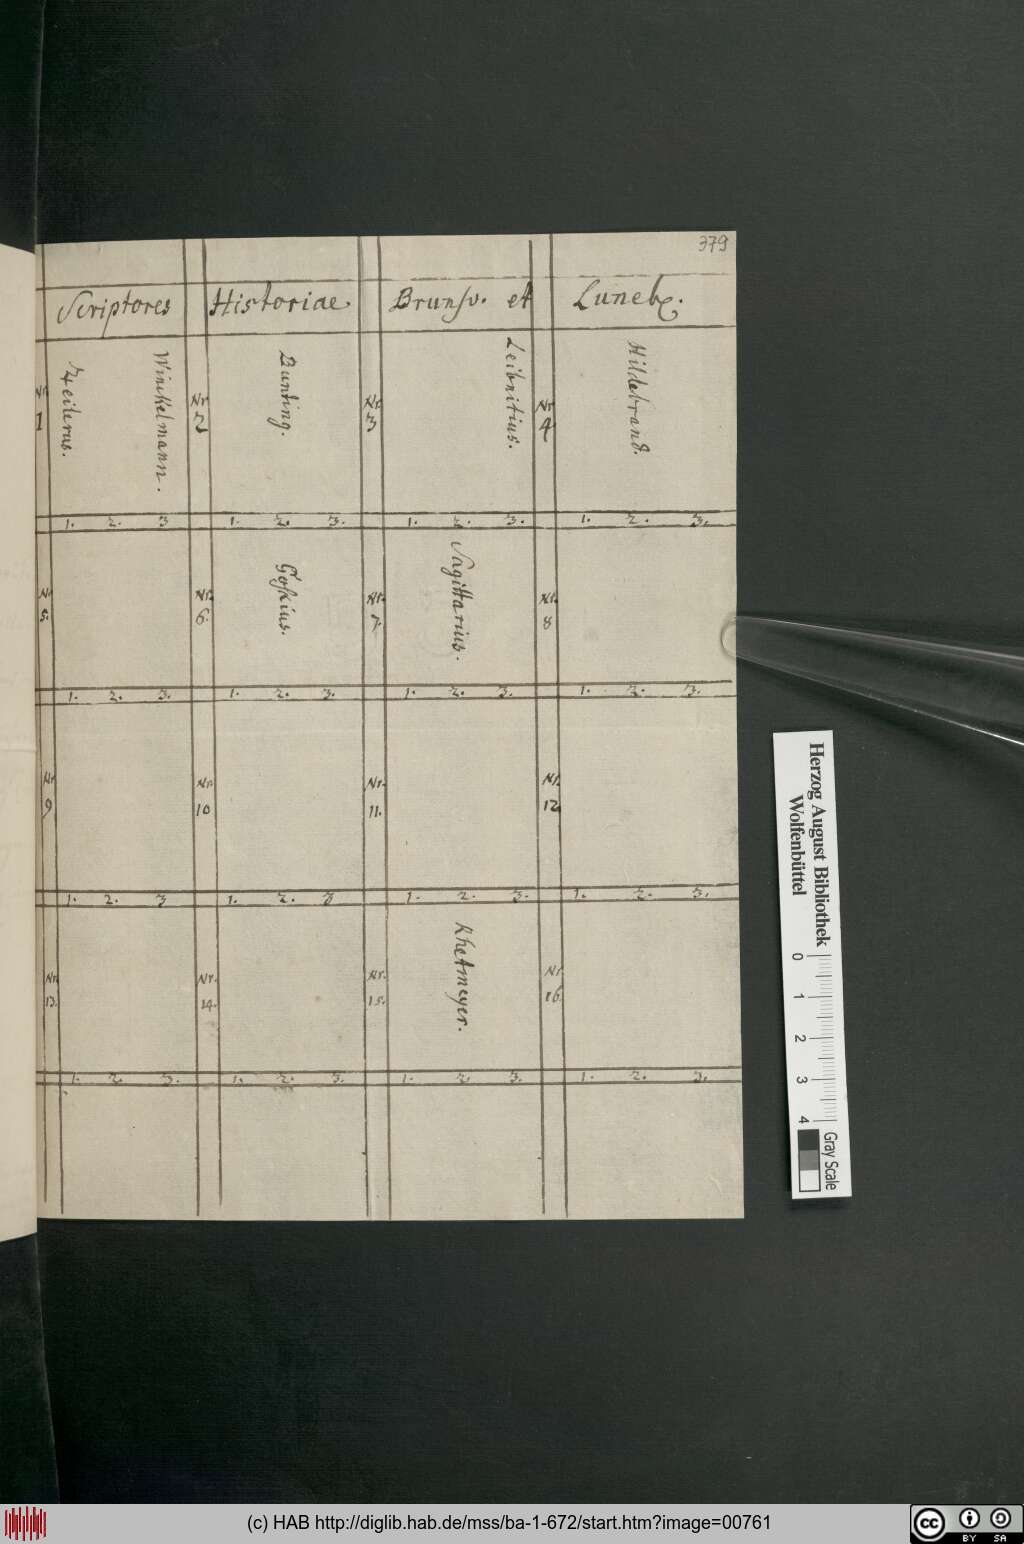 379
Scriptores Historiae Brunsv. et Luneb.
Nr. 1
Winckelmann.
Nr. 2
Bunting.
Nr. 3
Leibnitius.
Nr. 4
Hildebrand.
1. 2. 3 1. 2. 3. 1. 2. 3. 1. 2. 3.
Nr. 5.
Nr. 6.
Goskius.
Nr. 7.
Sagittarius.
Nr. 8
1. 2. 3. 1. 2. 3. 1. 2. 3. 1. 2. 3.
Nr. 9
Nr. 10
Nr. 11.
Nr. 12
1. 2. 3 1. 2. 3 1. 2. 3. 1. 2. 3.
Nr. 13.
Nr. 14.
Nr. 15.
Rhetmeyer.
Nr. 16
1. 2. 3. 1. 2. 3. 1. 2. 3. 1. 2. 3.
Herzog August Bibliothek
Wolfenbüttel
0 1 2 3 4
Gray Scale
(c) HAB http://diglib.hab.de/mss/ba-1-672/start.htm?image=00761
cc BY SA